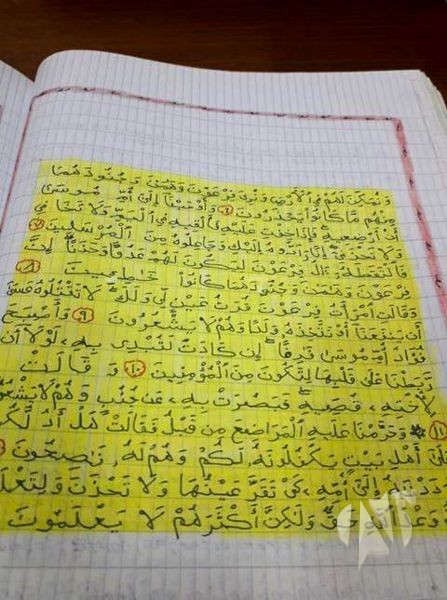 وَنُمَكِّنَ لَهُمْ فِي الْأَرْضِ وَنُرِيَ فِرْعَوْنَ وَهَٰمَٰنَ وَجُنُودَهُمَا
مِنْهُم مَّا كَانُوا يَحْذَرُونَ ٦ وَأَوْحَيْنَا إِلَىٰ أُمِّ مُوسَىٰ
أَنْ أَرْضِعِيهِ فَإِذَا خِفْتِ عَلَيْهِ فَأَلْقِيهِ فِي الْيَمِّ وَلَا تَخَافِي
وَلَا تَحْزَنِي إِنَّا رَادُّوهُ إِلَيْكِ وَجَاعِلُوهُ مِنَ الْمُرْسَلِينَ ٧
فَالْتَقَطَهُ آلُ فِرْعَوْنَ لِيَكُونَ لَهُمْ عَدُوًّا وَحَزَنًا إِنَّ
فِرْعَوْنَ وَهَٰمَٰنَ وَجُنُودَهُمَا كَانُوا خَٰطِـِٔينَ ٨
وَقَالَتِ امْرَأَتُ فِرْعَوْنَ قُرَّتُ عَيْنٍ لِّي وَلَكَ لَا تَقْتُلُوهُ عَسَىٰ
أَن يَنفَعَنَا أَوْ نَتَّخِذَهُ وَلَدًا وَهُمْ لَا يَشْعُرُونَ ٩ وَأَصْبَحَ
فُؤَادُ أُمِّ مُوسَىٰ فَٰرِغًا إِن كَادَتْ لَتُبْدِي بِهِ لَوْلَا أَن
رَّبَطْنَا عَلَىٰ قَلْبِهَا لِتَكُونَ مِنَ الْمُؤْمِنِينَ ١٠ وَقَالَتْ
لِأُخْتِهِ قُصِّيهِ فَبَصُرَتْ بِهِ عَن جُنُبٍ وَهُمْ لَا يَشْعُ
١١ وَحَرَّمْنَا عَلَيْهِ الْمَرَاضِعَ مِن قَبْلُ فَقَالَتْ هَلْ أَدُلُّكُ
عَلَىٰ أَهْلِ بَيْتٍ يَكْفُلُونَهُ لَكُمْ وَهُمْ لَهُ نَٰصِحُونَ
فَرَدَدْنَٰهُ إِلَىٰ أُمِّهِ كَيْ تَقَرَّ عَيْنُهَا وَلَا تَحْزَنَ وَلِتَعْلَ
وَعْدَ اللَّهِ حَقٌّ وَلَٰكِنَّ أَكْثَرَهُمْ لَا يَعْلَمُونَ